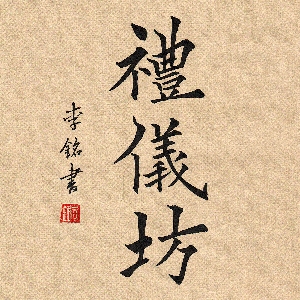 禮儀坊
李銘書